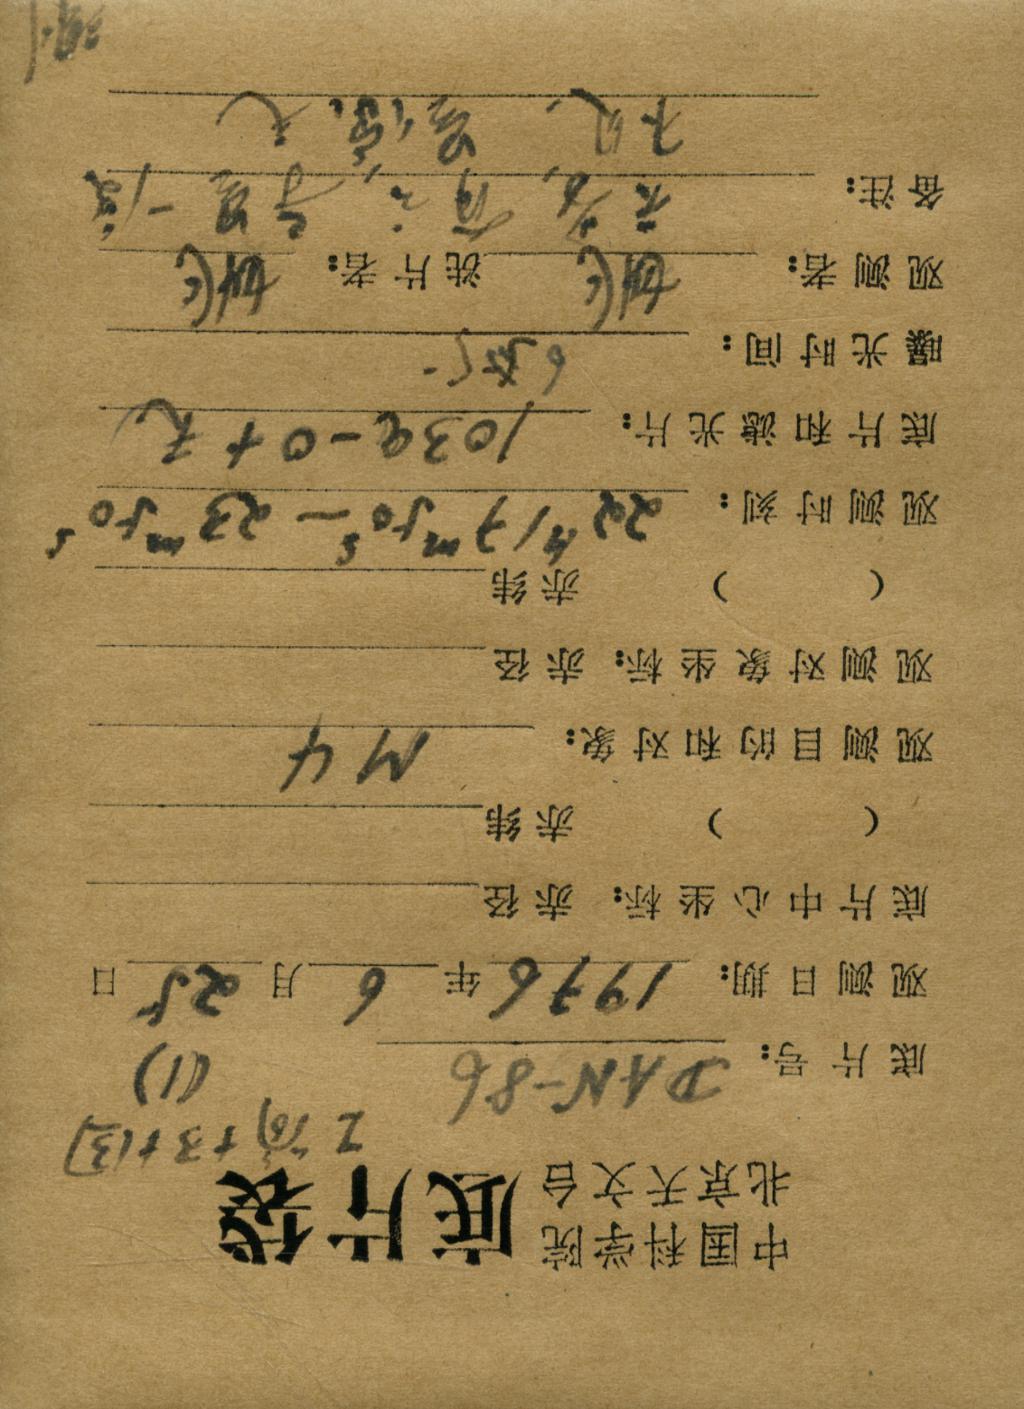 中国科学院
北京天文台
底片袋
底片号： DAN-86 (1)
观测日期： 1976 年 6 月 25 日
底片中心坐标：赤径
( ) 赤纬
观测目的和对象： M4
观测对象坐标：赤径
( ) 赤纬
观测时刻： 22h17m50s — 23m50s
底片和滤光片： 103a-O + 无
曝光时间：
观测者： 洗片者：
备注：